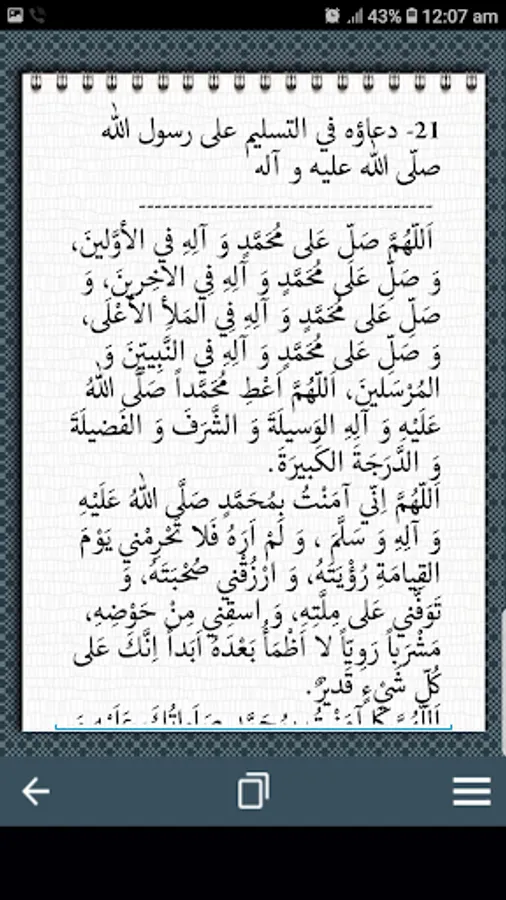 43% 12:07 am
21- دعاؤه في التسليم على رسول الله
صلّى الله عليه و آله
-----------------------------------
اَللّهُمَّ صَلّ عَلى مُحَمَّدٍ وَ آلِهِ فِي الأوَّلينَ،
وَ صَلِّ عَلى مُحَمَّدٍ وَ آلِهِ فِي الآخِرينَ، وَ
صَلِّ عَلى مُحَمَّدٍ وَ آلِهِ فِي المَلَأِ الأعْلَى،
وَ صَلِّ عَلى مُحَمَّدٍ وَ آلِهِ في النَّبِيّينَ وَ
المُرْسَلينَ، اَللّهُمَّ اَعْطِ مُحَمَّداً صَلَّى اللهُ
عَلَيْهِ وَ آلِهِ الوَسيلَةَ وَ الشَّرَفَ وَ الفَضيلَةَ
وَ الدَّرَجَةَ الكَبيرَةَ.
اَللّهُمَّ اِنّي آمَنْتُ بِمُحَمَّدٍ صَلَّي اللهُ عَلَيْهِ
وَ آلِهِ وَ سَلَّمَ ، وَ لَمْ اَرَهُ فَلا تَحْرِمْني يَوْمَ
القِيامَةِ رُؤْيَتَهُ، وَ ارْزُقْني صُحْبَتَهُ، وَ
تَوَفَّني عَلى مِلَّتِهِ، وَ اسقِني مِنْ حَوْضِهِ،
مَشْرَباً رَوِيّاً لا اَظْمَأُ بَعْدَهُ اَبَداً اِنَّكَ عَلى
كُلِّ شَيْءٍ قَديرٌ.